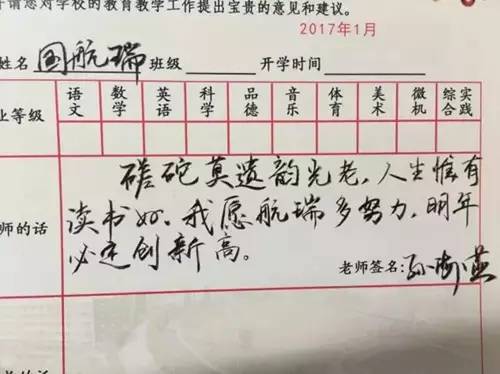 请您对学校的教育教学工作提出宝贵的意见和建议。
2017年1月
姓名 国航瑞 班级 开学时间
业等级 语文 数学 英语 科学 品德 音乐 体育 美术 微机 综合实践
磋砣莫遗韵光老,人生惟有
师的话 读书好。我愿航瑞多努力,明年
必定创新高。
老师签名:孙